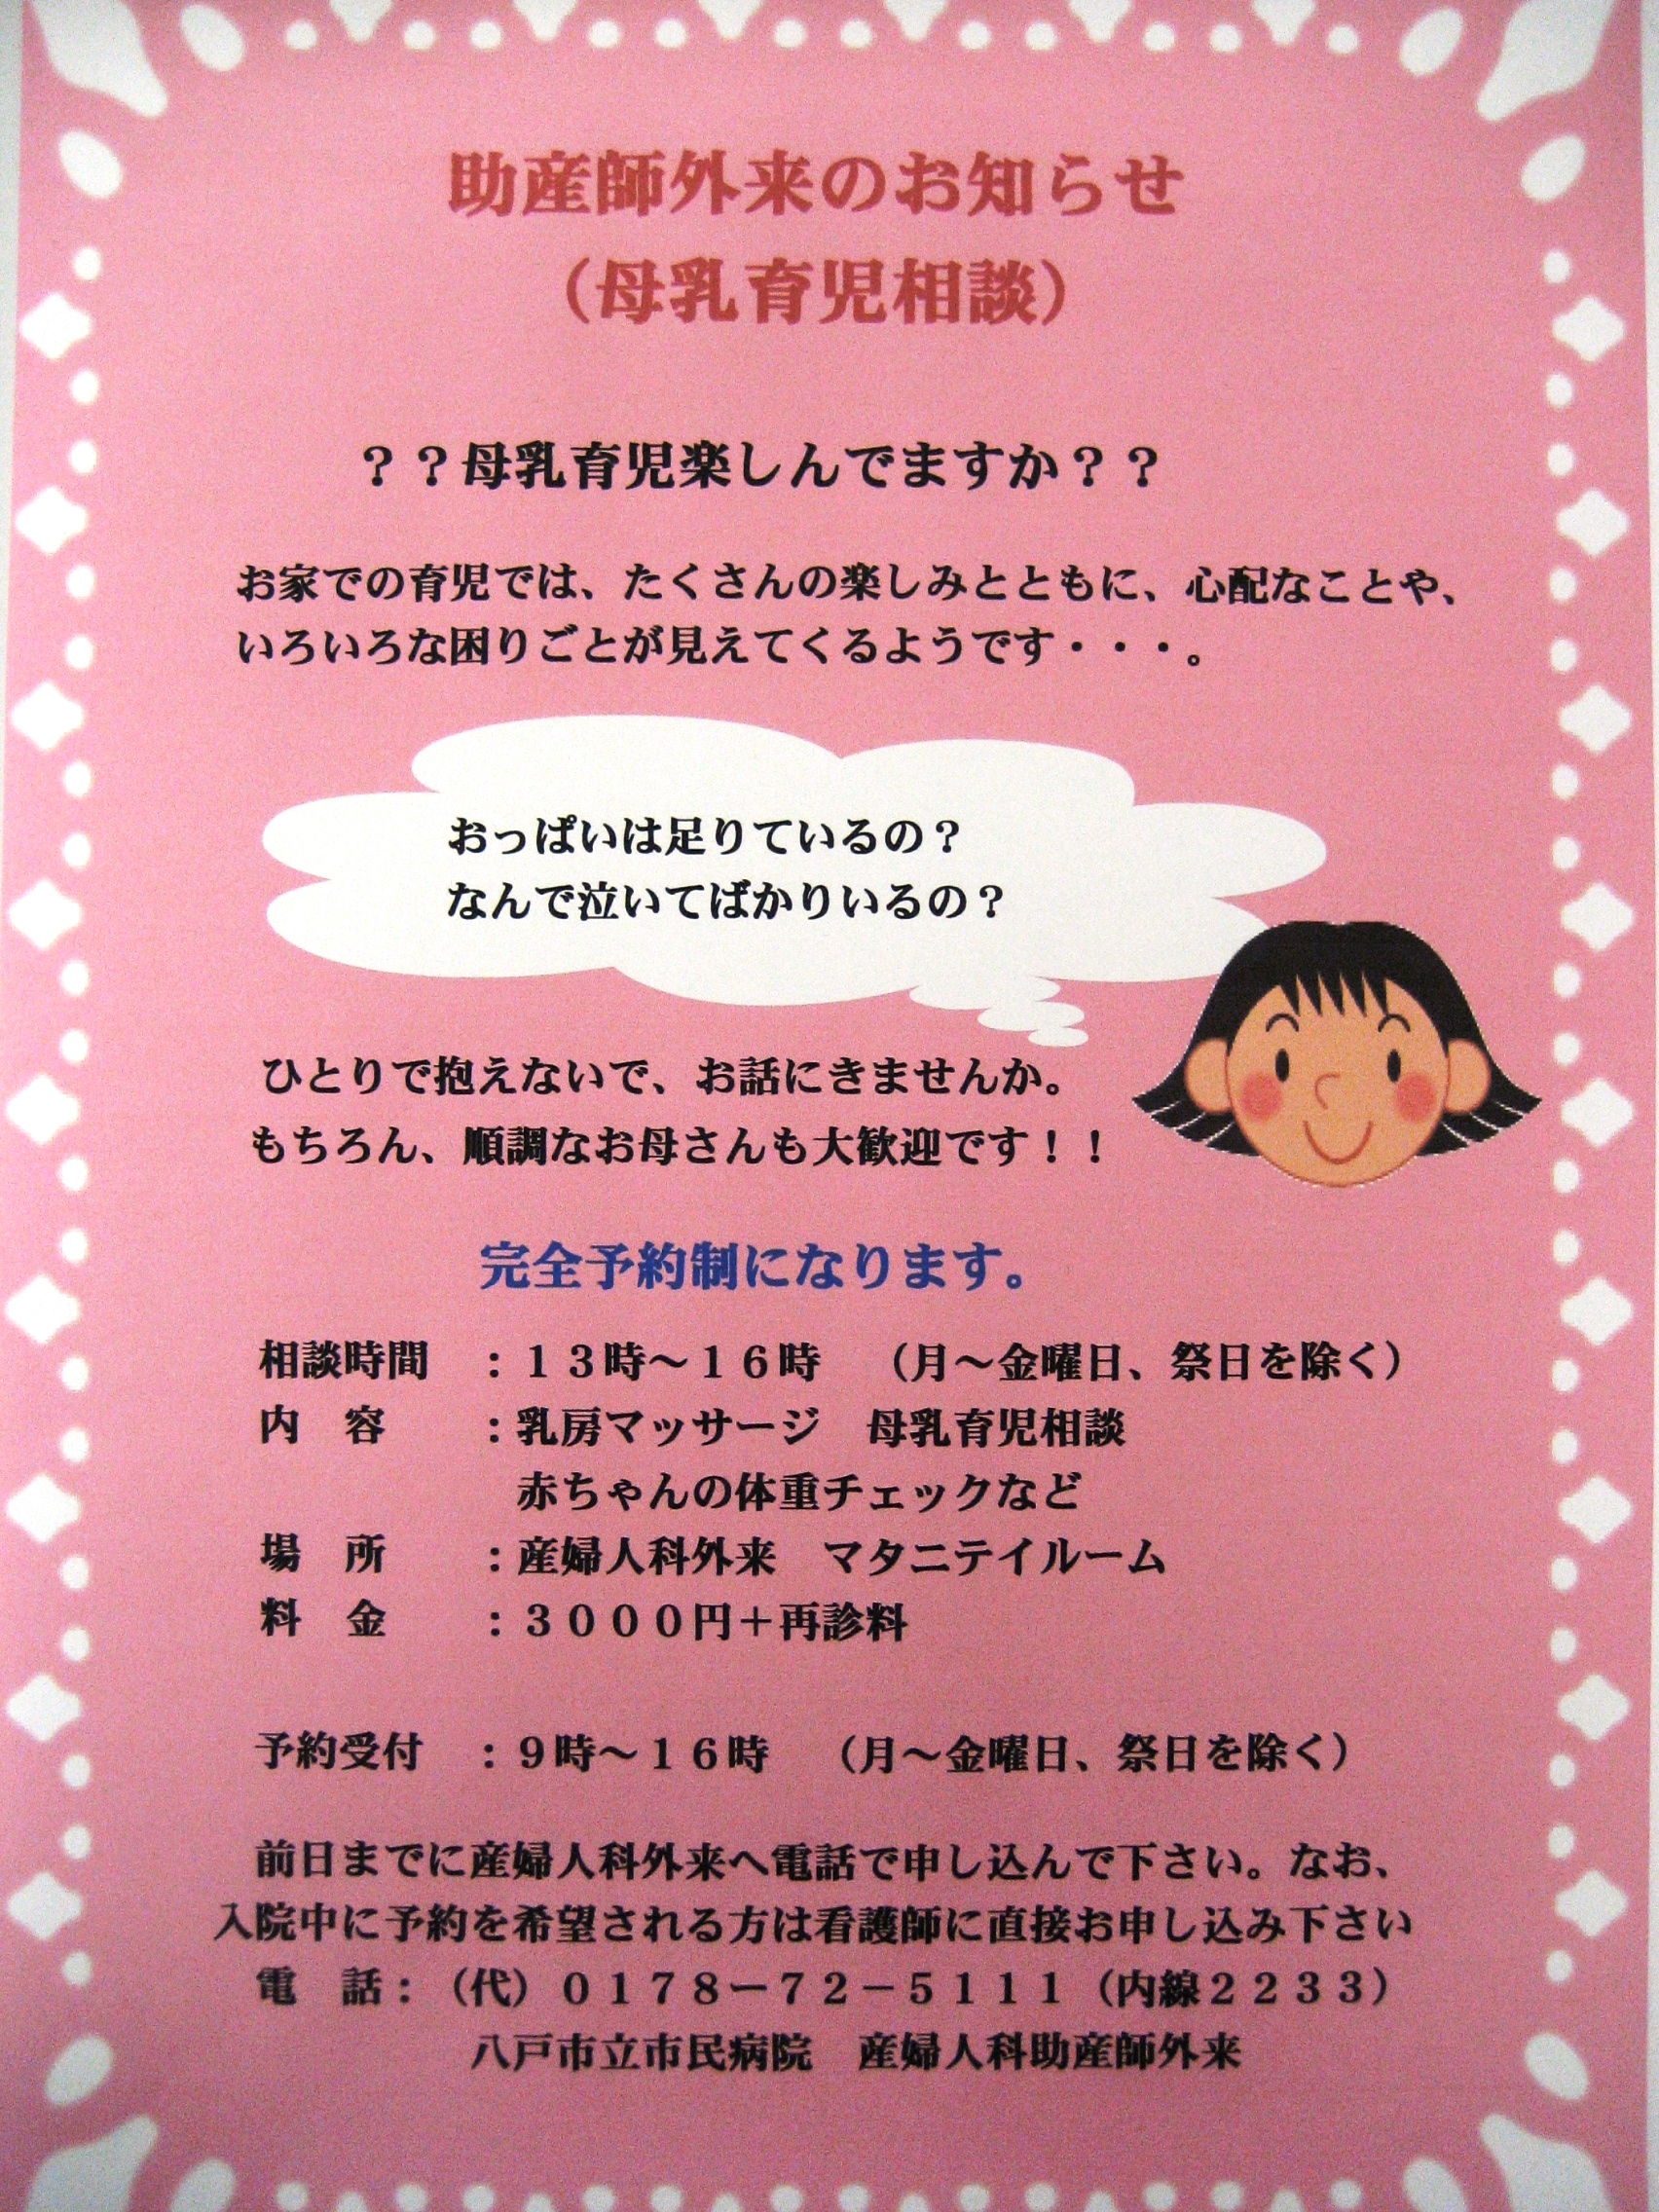 助産師外来のお知らせ
（母乳育児相談）
？？母乳育児楽しんでますか？？
お家での育児では、たくさんの楽しみとともに、心配なことや、
いろいろな困りごとが見えてくるようです・・・。
おっぱいは足りているの？
なんで泣いてばかりいるの？
ひとりで抱えないで、お話にきませんか。
もちろん、順調なお母さんも大歓迎です！！
完全予約制になります。
相談時間　：１３時～１６時　（月～金曜日、祭日を除く）
内　容　　：乳房マッサージ　母乳育児相談
赤ちゃんの体重チェックなど
場　所　　：産婦人科外来　マタニテイルーム
料　金　　：３０００円＋再診料
予約受付　：９時～１６時　（月～金曜日、祭日を除く）
前日までに産婦人科外来へ電話で申し込んで下さい。なお、
入院中に予約を希望される方は看護師に直接お申し込み下さい
電　話：（代）０１７８ー７２－５１１１（内線２２３３）
八戸市立市民病院　産婦人科助産師外来